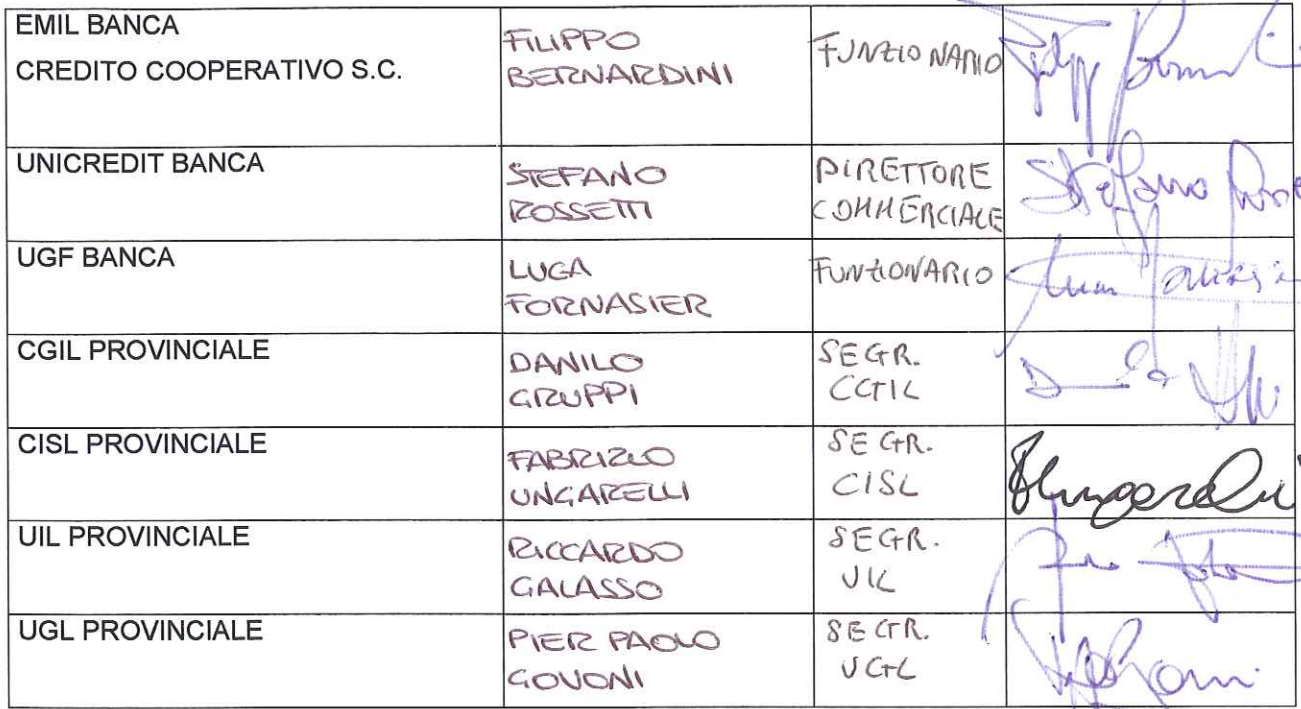 EMIL BANCA
CREDITO COOPERATIVO S.C.
FILIPPO
BERNARDINI
FUNZIONARIO
UNICREDIT BANCA
STEFANO
ROSSETTI
DIRETTORE
COMMERCIALE
Stefano
UGF BANCA
LUCA
FORNASIER
FUNZIONARIO
CGIL PROVINCIALE
DANILO
GRUPPI
SEGR.
CGIL
CISL PROVINCIALE
FABRIZIO
UNGARELLI
SEGR.
CISL
UIL PROVINCIALE
RICCARDO
GALASSO
SEGR.
UIL
UGL PROVINCIALE
PIER PAOLO
GOVONI
SEGR.
UGL